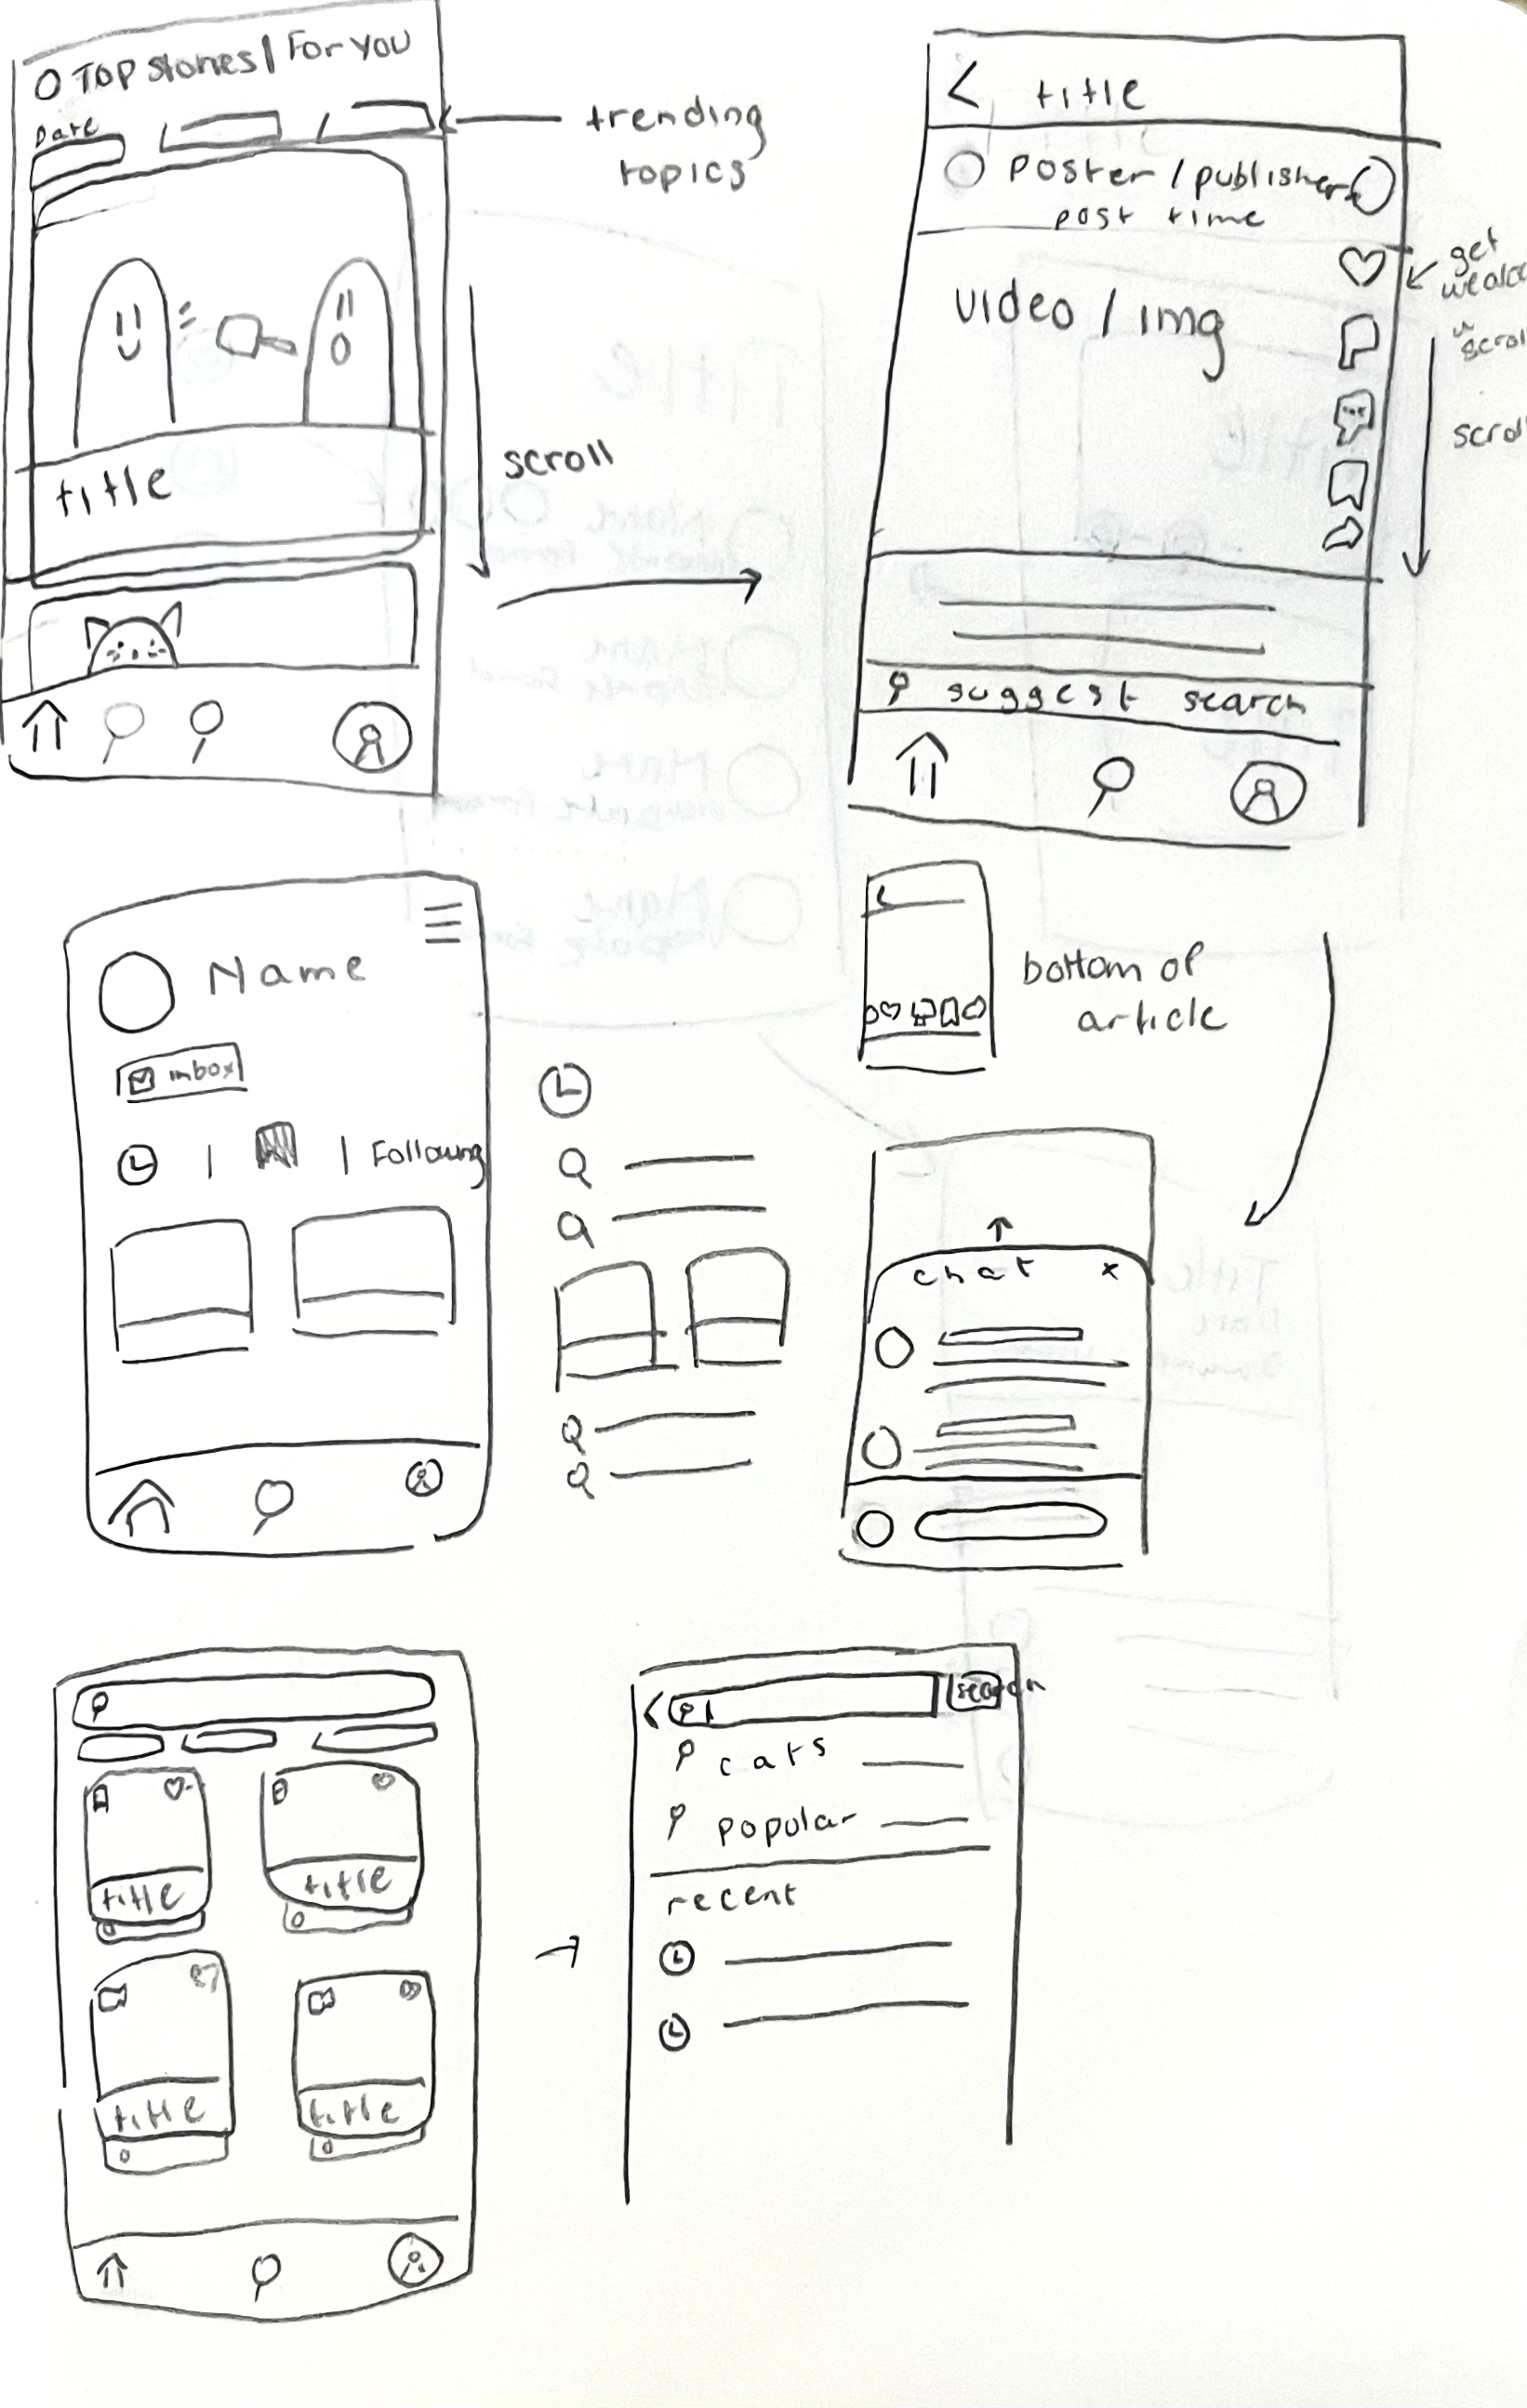 Top stories | For you
Date
trending
topics
title
scroll
title
poster / publisher
post time
video / img
get
scroll
scroll
suggest search
Name
inbox
| | Following
bottom of
article
chat x
title
title
title
title
search
cats
popular
recent